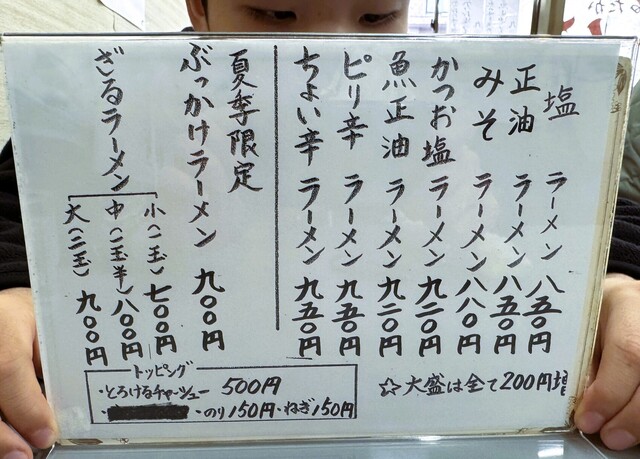 塩ラーメン 八五〇円
正油ラーメン 八五〇円
みそラーメン 八八〇円
かつお塩ラーメン 九二〇円
魚正油ラーメン 九二〇円
ピリ辛ラーメン 九五〇円
ちょい辛ラーメン 九五〇円
☆大盛は全て200円増
夏季限定
ぶっかけラーメン 九〇〇円
ざるラーメン
小(一玉) 七〇〇円
中(一玉半) 八〇〇円
大(二玉) 九〇〇円
トッピング
・とろけるチャーシュー 500円
・のり150円・ねぎ150円